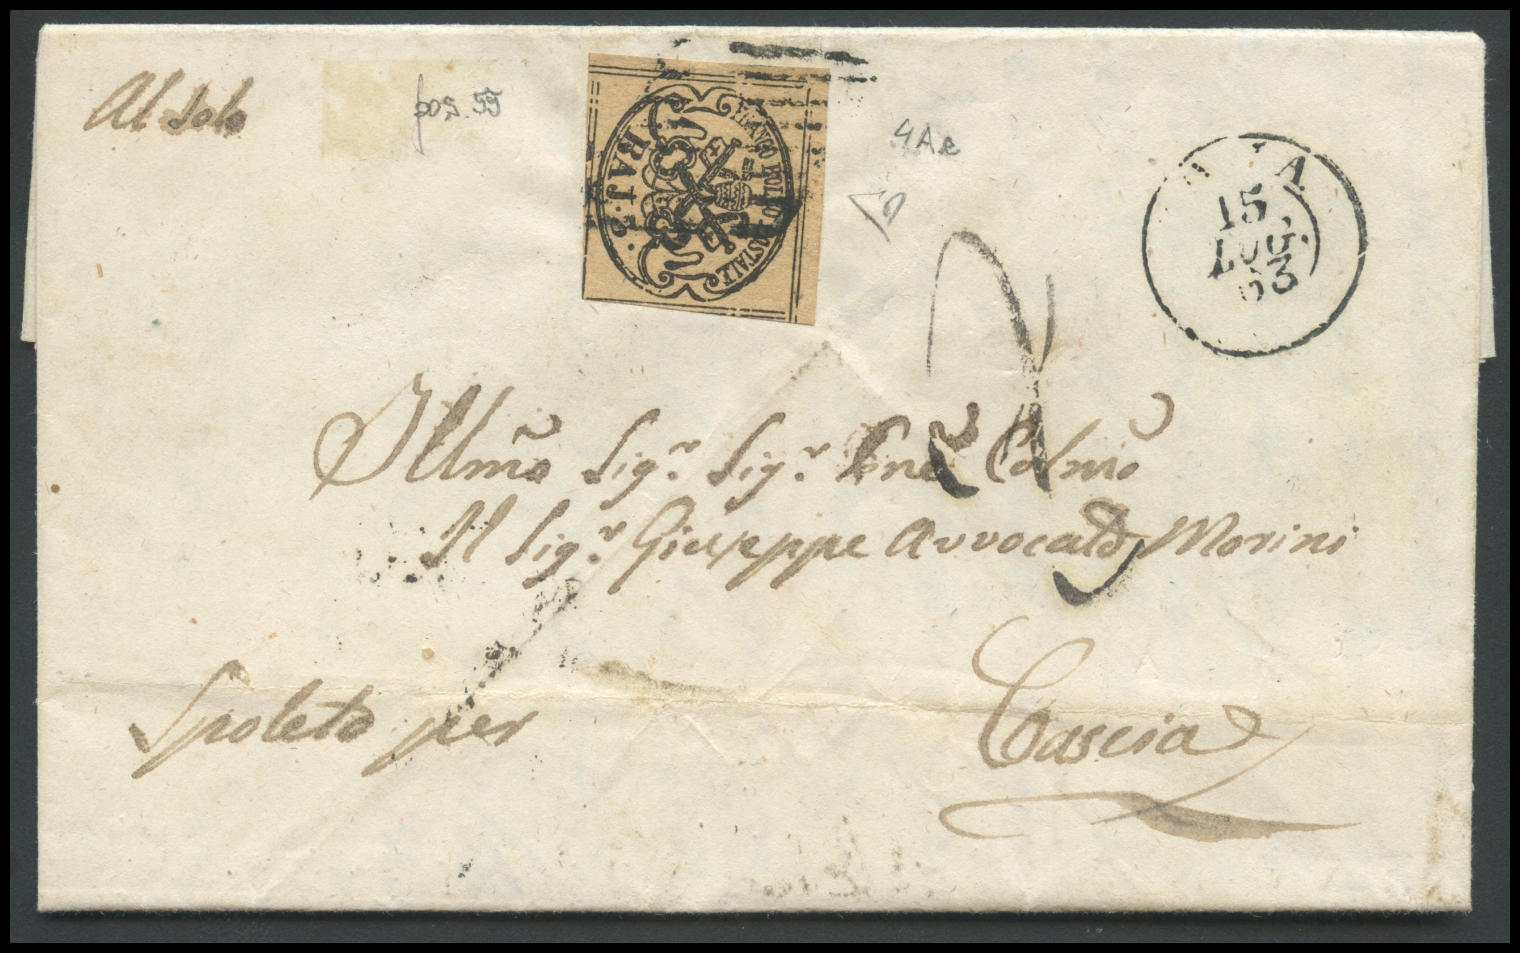 Al Solo
pos. 55
FRANCO BOLLO POSTALE
BAJ. 3.
4Ae
15
LUG.
63
Illmõ Sigr. Sigr. Pne Colmõ
Il Sigr. Giuseppe Avvocato Morini
Spoleto per
Cascia